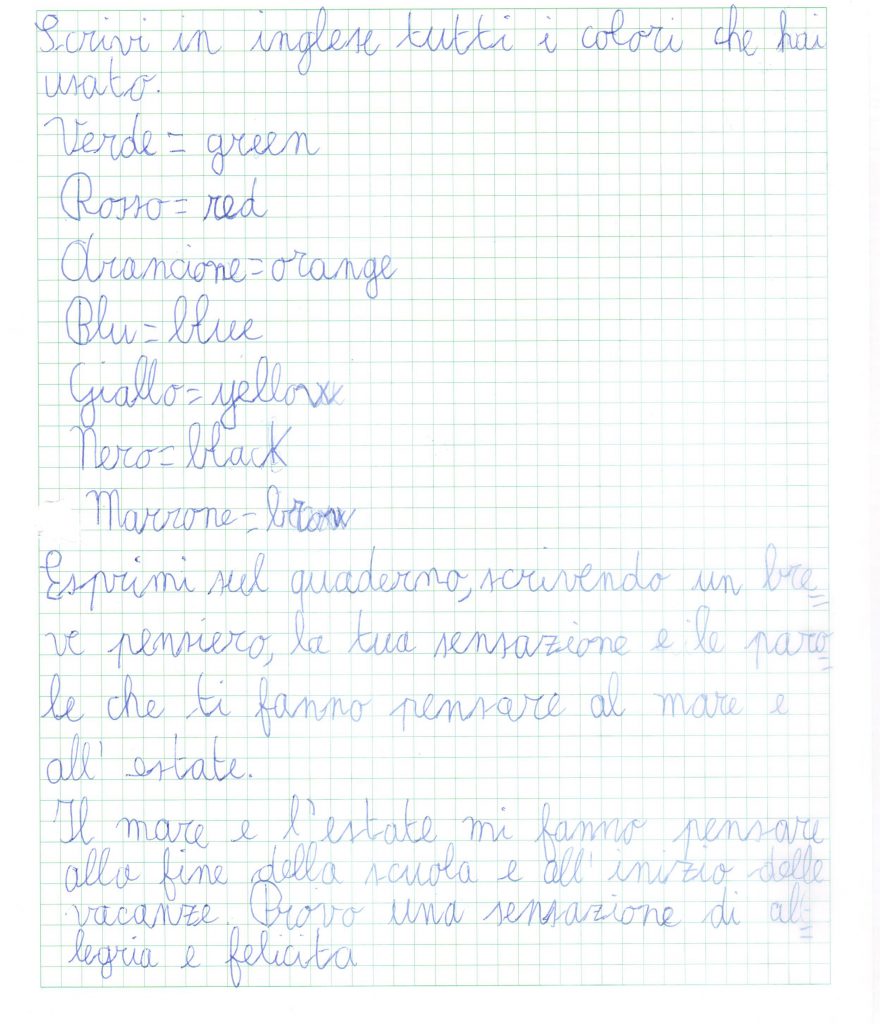 Scrivi in inglese tutti i colori che hai
usato.
Verde = green
Rosso = red
Arancione = orange
Blu = blue
Giallo = yellow
Nero = black
Marrone =
Esprimi sul quaderno, scrivendo un bre=
ve pensiero, la tua sensazione e le paro=
le che ti fanno pensare al mare e
all' estate.
Il mare e l'estate mi fanno pensare
alla fine della scuola e all' inizio delle
vacanze. Provo una sensazione di al=
legria e felicita